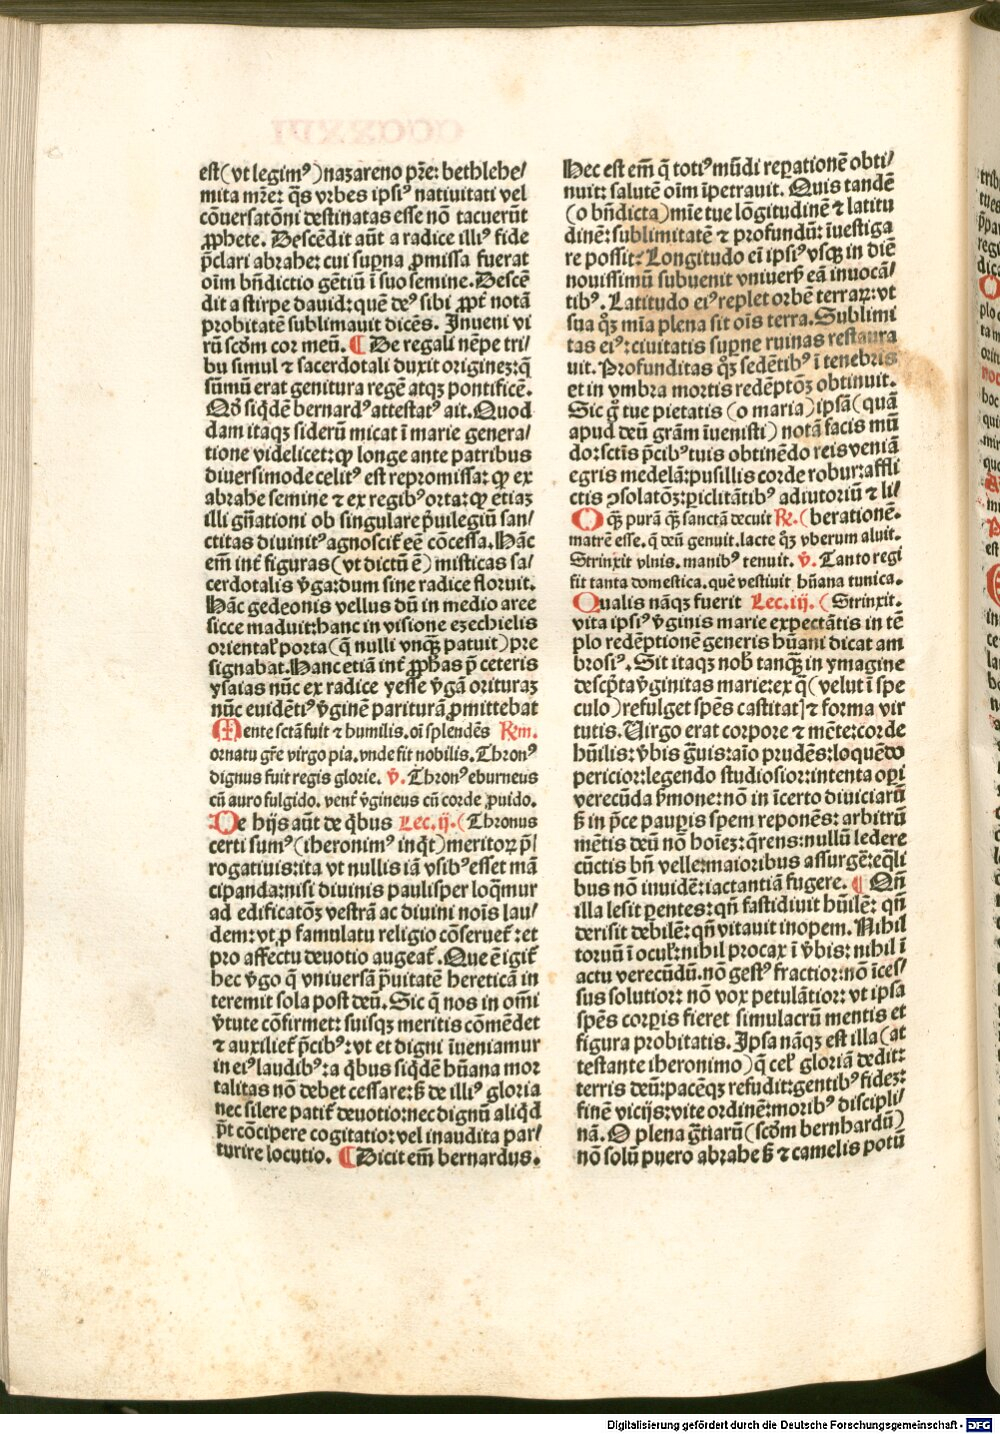 est (vt legimꝰ) nazareno pr̄e: bethlehe/
mita mr̄e: q̄s vrbes ipsiꝰ natiuitati vel
cōuersatōni destinatas esse nō tacuerūt
ꝓphete. Descēdit aūt a radice illiꝰ fide
p̄clari abrahe: cui sup̱na ꝓmissa fuerat
oīm bn̄dictio gētiū ī suo semine. Descē
dit a stirpe dauid: quē deꝰ sibi ꝓpt̄ notā
probitatē sublimauit dicēs. Inueni vi
rū scd̄m cor meū. ¶ De regali nēpe tri/
bu simul ⁊ sacerdotali duxit originez: q̄
sūmū erat genitura regē atqꝫ pontificē.
Qd̓ siqdē bernardꝰ attestatꝰ ait. Quod
dam itaqꝫ siderū micat ī marie genera/
tione videlicet: ꝙ longe ante patribus
diuersimode celitꝰ est repromissa: ꝙ ex
abrahe semine ⁊ ex regibꝰ orta: ꝙ etiaꝫ
illi gn̄ationi ob singulare p̄uilegiū san/
ctitas diuinitꝰ agnoscit̄ eē cōcessa. Hāc
em̄ int̄ figuras (vt dictū ē) misticas sa/
cerdotalis v̄ga: dum sine radice floruit.
Hāc gedeonis vellus dū in medio aree
sicce maduit: hanc in visione ezechielis
oriental̓ porta (q̄ nulli vnqꝫ patuit) pre
signabat. Hanc etiā int̄ ꝓphas p̄ ceteris
ysaias nūc ex radice yesse v̄gā orituraꝫ
nūc euidētiꝰ v̄ginē pariturā ꝓmittebat
Mente sctā fuit ⁊ humilis. oī splendēs Rm.
ornatu gr̄e virgo pia. vnde fit nobilis. Thronꝰ
dignus fuit regis glorie. v̄. Thronꝰ eburneus
cū auro fulgido. vent̄ v̄gineus cū corde ꝓuido.
De hijs aūt de q̄bus Lec. ij. (Thronus
certi sumꝰ (iheronimꝰ inq̄t) meritoꝝ p̄/
rogatiuis: ita vt nullis iā vsibꝰ esset mā
cipanda: nisi diuinis paulisper loq̄mur
ad edificatōꝫ vestrā ac diuini noīs lau/
dem: vt ꝓ famulatu religio cōseruet̄: et
pro affectu deuotio augeat̄. Que ē igit̄
hec v̄go q̄ vniuersā p̄uitatē hereticā in
teremit sola post deū. Sic q̄ nos in om̄i
v̄tute cōfirmet: suisqꝫ meritis cōmēdet
⁊ auxiliet̄ p̄cibꝰ: vt et digni īueniamur
in eiꝰ laudibꝰ: a q̄bus siqdē hūana mor
talitas nō debet cessare: s̄ de illiꝰ gloria
nec silere patit̄ deuotio: nec dignū aliq̄d
p̄t cōcipere cogitatio: vel inaudita par/
turire locutio. ¶ Dicit em̄ bernardus.
Hec est em̄ q̄ totiꝰ mūdi rep̱ationē obti/
nuit: salutē oīm īpetrauit. Quis tandē
(o bn̄dicta) mīe tue lōgitudinē ⁊ latitu
dinē: sublimitatē ⁊ profundū: īuestiga
re possit? Longitudo eī ipsiꝰ vsqꝫ in diē
nouissimū subuenit vniuers̄ eā inuocā/
tibꝰ. Latitudo eiꝰ replet orbē terraꝝ: vt
sua qꝫ mīa plena sit oīs terra. Sublimi
tas eiꝰ: ciuitatis sup̱ne ruinas restaura
uit. Profunditas qꝫ sedētibꝰ ī tenebris
et in vmbra mortis redēptōꝫ obtinuit.
Sic g̓ tue pietatis (o maria) ipsā (quā
apud deū grām īuenisti) notā facis mū
do: sctīs p̄cibꝰ tuis obtinēdo reis veniā
egris medelā: pusillis corde robur: affli
ctis ꝯsolatōꝫ: piclitātibꝰ adiutoriū ⁊ li/
O qꝫ purā qꝫ sanctā decuit R. (berationē.
matrē esse. q̄ deū genuit. lacte qꝫ vberum aluit.
Strinxit vlnis. manibꝰ tenuit. v̄. Tanto regi
fit tanta domestica. quē vestiuit hūana tunica.
Qualis nāqꝫ fuerit Lec. iij. (Strinxit.
vita ipsiꝰ v̄ginis marie expectātis in tē
plo redēptionē generis hūani dicat am
brosiꝰ. Sit itaqꝫ nob̄ tanqꝫ in ymagine
descp̄ta v̄ginitas marie: ex q̄ (velut ī spe
culo) refulget spēs castitat̄ ⁊ forma vir
tutis. Uirgo erat corpore ⁊ mēte: corde
hūilis: v̄bis g̓uis: aīo prudēs: loquēdo
pericior: legendo studiosior: intenta op̱i
verecūda s̄mone: nō in īcerto diuiciarū
s̄ in p̄ce paup̱is spem reponēs: arbitrū
mētis deū nō hoīeꝫ: q̄rens: nullū ledere
cūctis bn̄ velle: maioribus assurgē: eq̄li
bus nō inuidē: iactantiā fugere. ¶ Qn̄
illa lesit p̱entes: qn̄ fastidiuit hūilē: qn̄
derisit debilē: qn̄ vitauit inopem. Nihil
toruū ī ocul̓: nihil procax ī v̄bis: nihil ī
actu verecūdū. nō gestꝰ fractior: nō īces/
sus solutior: nō vox petulātior: vt ipsa
spēs corp̱is fieret simulacrū mentis et
figura probitatis. Ipsa nāqꝫ est illa (at
testante iheronimo) q̄ cel̓ gloriā dedit:
terris deū: pacēqꝫ refudit: gentibꝰ fidez:
finē vicijs: vite ordinē: moribꝰ discipli/
nā. O plena g̓tiarū (scd̄m bernhardū)
nō solū puero abrahe s̄ ⁊ camelis potū
Digitalisierung gefördert durch die Deutsche Forschungsgemeinschaft - DFG